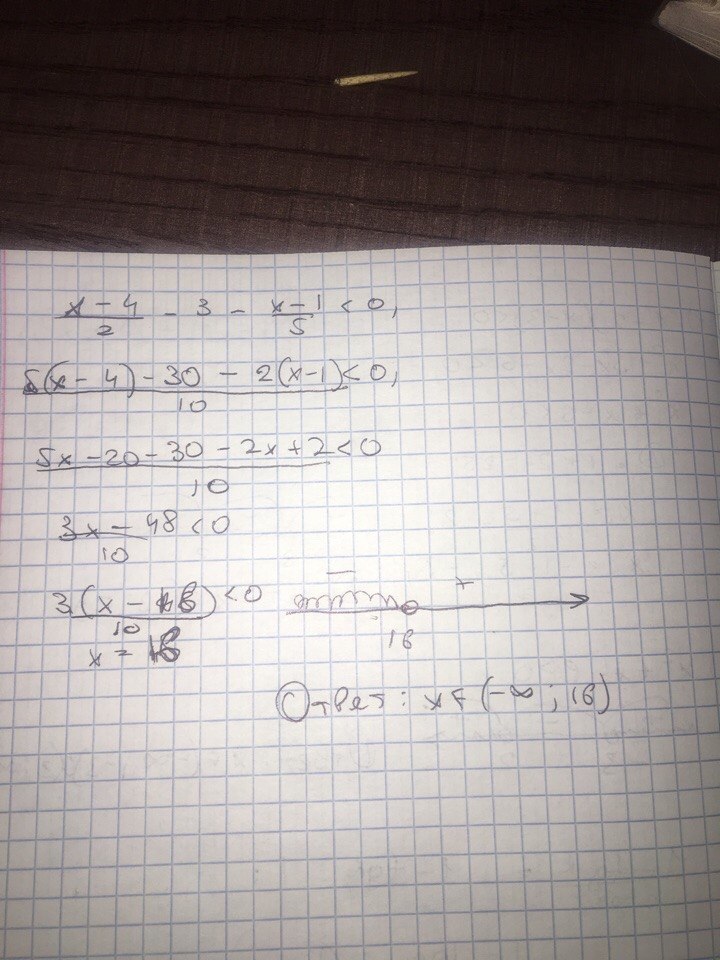 x-4/2 - 3 - x-1/5 < 0,
5(x-4)-30-2(x-1)/10 < 0,
5x-20-30-2x+2/10 < 0
3x-48/10 < 0
3(x-16)/10 < 0
x = 16
- +
16
Ответ: x ∈ (-∞; 16)